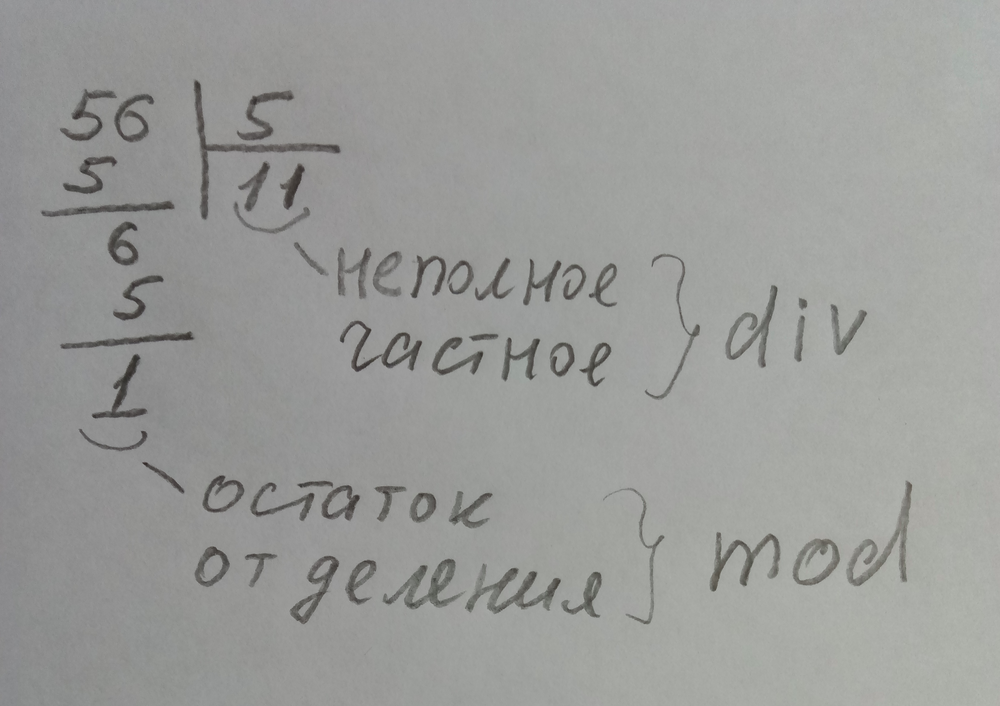 56 5
5 11
6
неполное
5
частное div
1
остаток
от деления mod